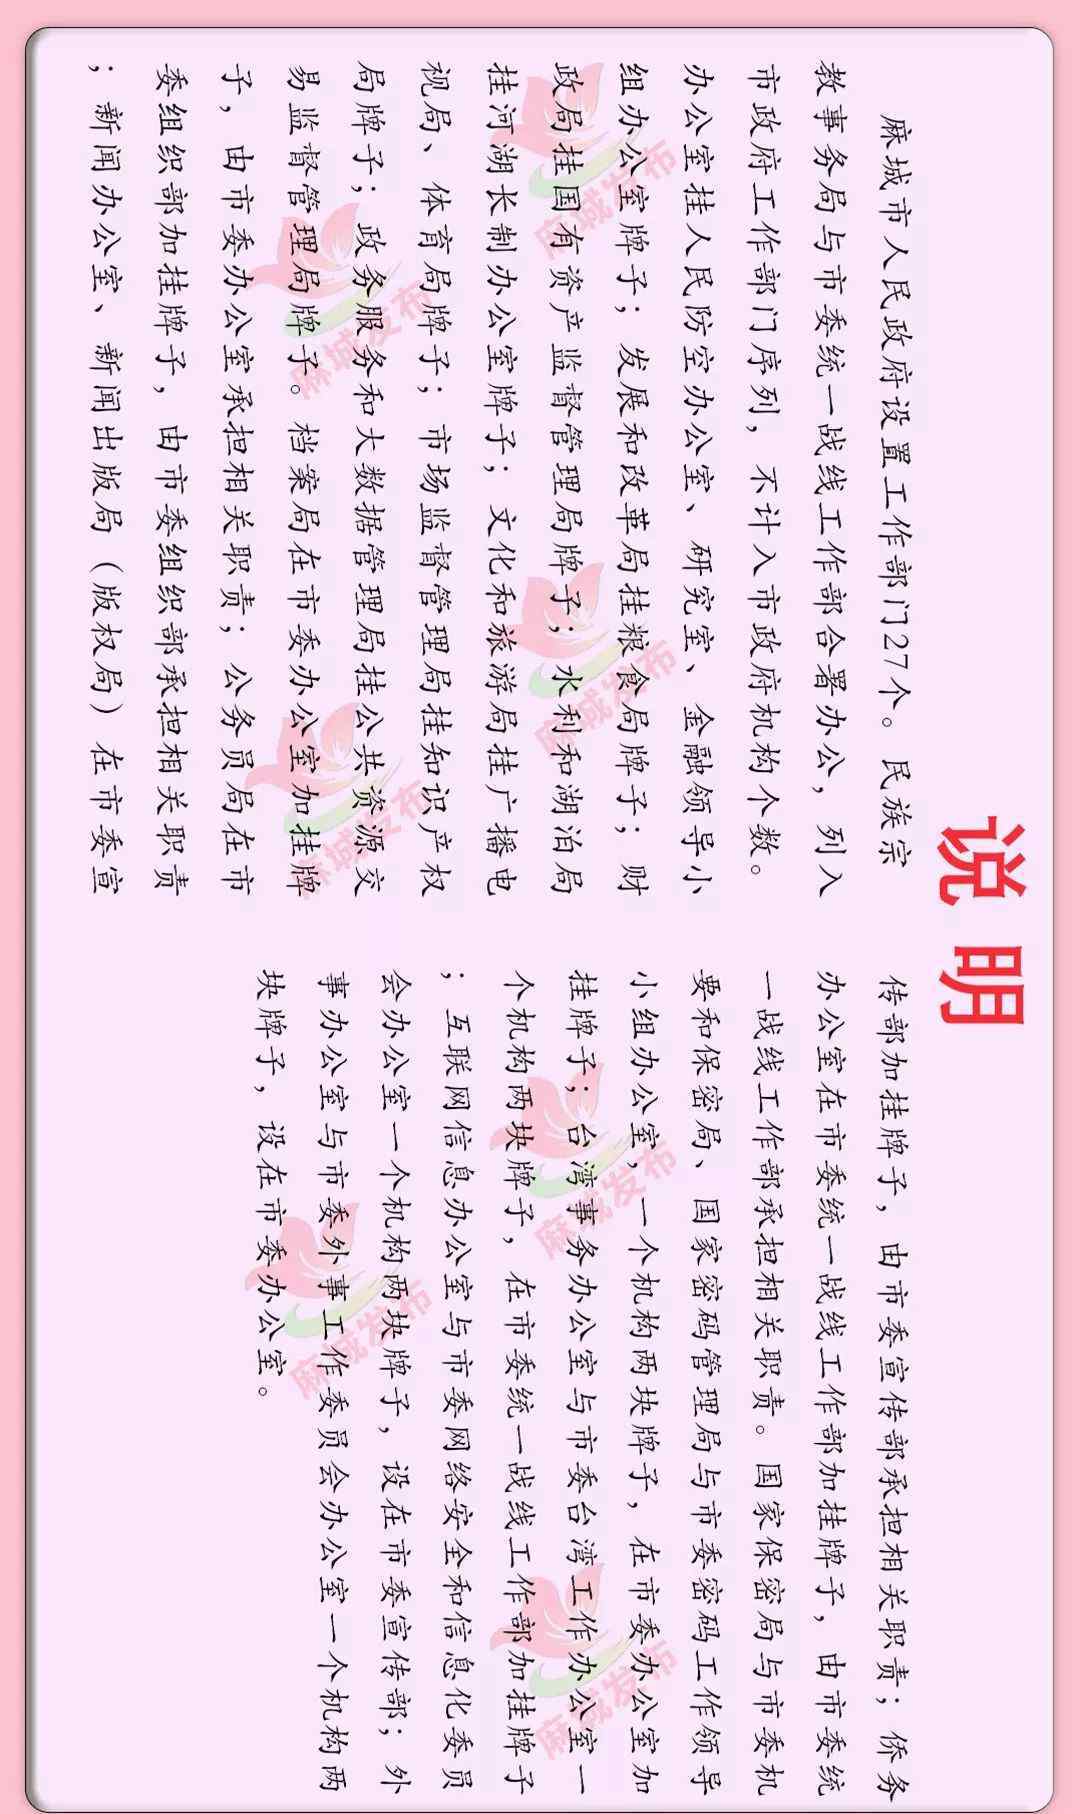 说明
麻城市人民政府设置工作部门27个。民族宗
教事务局与市委统一战线工作部合署办公，列入
市政府工作部门序列，不计入市政府机构个数。
办公室挂人民防空办公室、研究室、金融领导小
组办公室牌子；发展和改革局挂粮食局牌子；财
政局挂国有资产监督管理局牌子；水利和湖泊局
挂河湖长制办公室牌子；文化和旅游局挂广播电
视局、体育局牌子；市场监督管理局挂知识产权
局牌子；政务服务和大数据管理局挂公共资源交
易监督管理局牌子。档案局在市委办公室加挂牌
子，由市委办公室承担相关职责；公务员局在市
委组织部加挂牌子，由市委组织部承担相关职责
；新闻办公室、新闻出版局（版权局）在市委宣
传部加挂牌子，由市委宣传部承担相关职责；侨务
办公室在市委统一战线工作部加挂牌子，由市委统
一战线工作部承担相关职责。国家保密局与市委机
要和保密局、国家密码管理局与市委密码工作领导
小组办公室，一个机构两块牌子，在市委办公室加
挂牌子；台湾事务办公室与市委台湾工作办公室一
个机构两块牌子，在市委统一战线工作部加挂牌子
；互联网信息办公室与市委网络安全和信息化委员
会办公室一个机构两块牌子，设在市委宣传部；外
事办公室与市委外事工作委员会办公室一个机构两
块牌子，设在市委办公室。
麻城发布
麻城发布
麻城发布
麻城发布
麻城发布
麻城发布
麻城发布